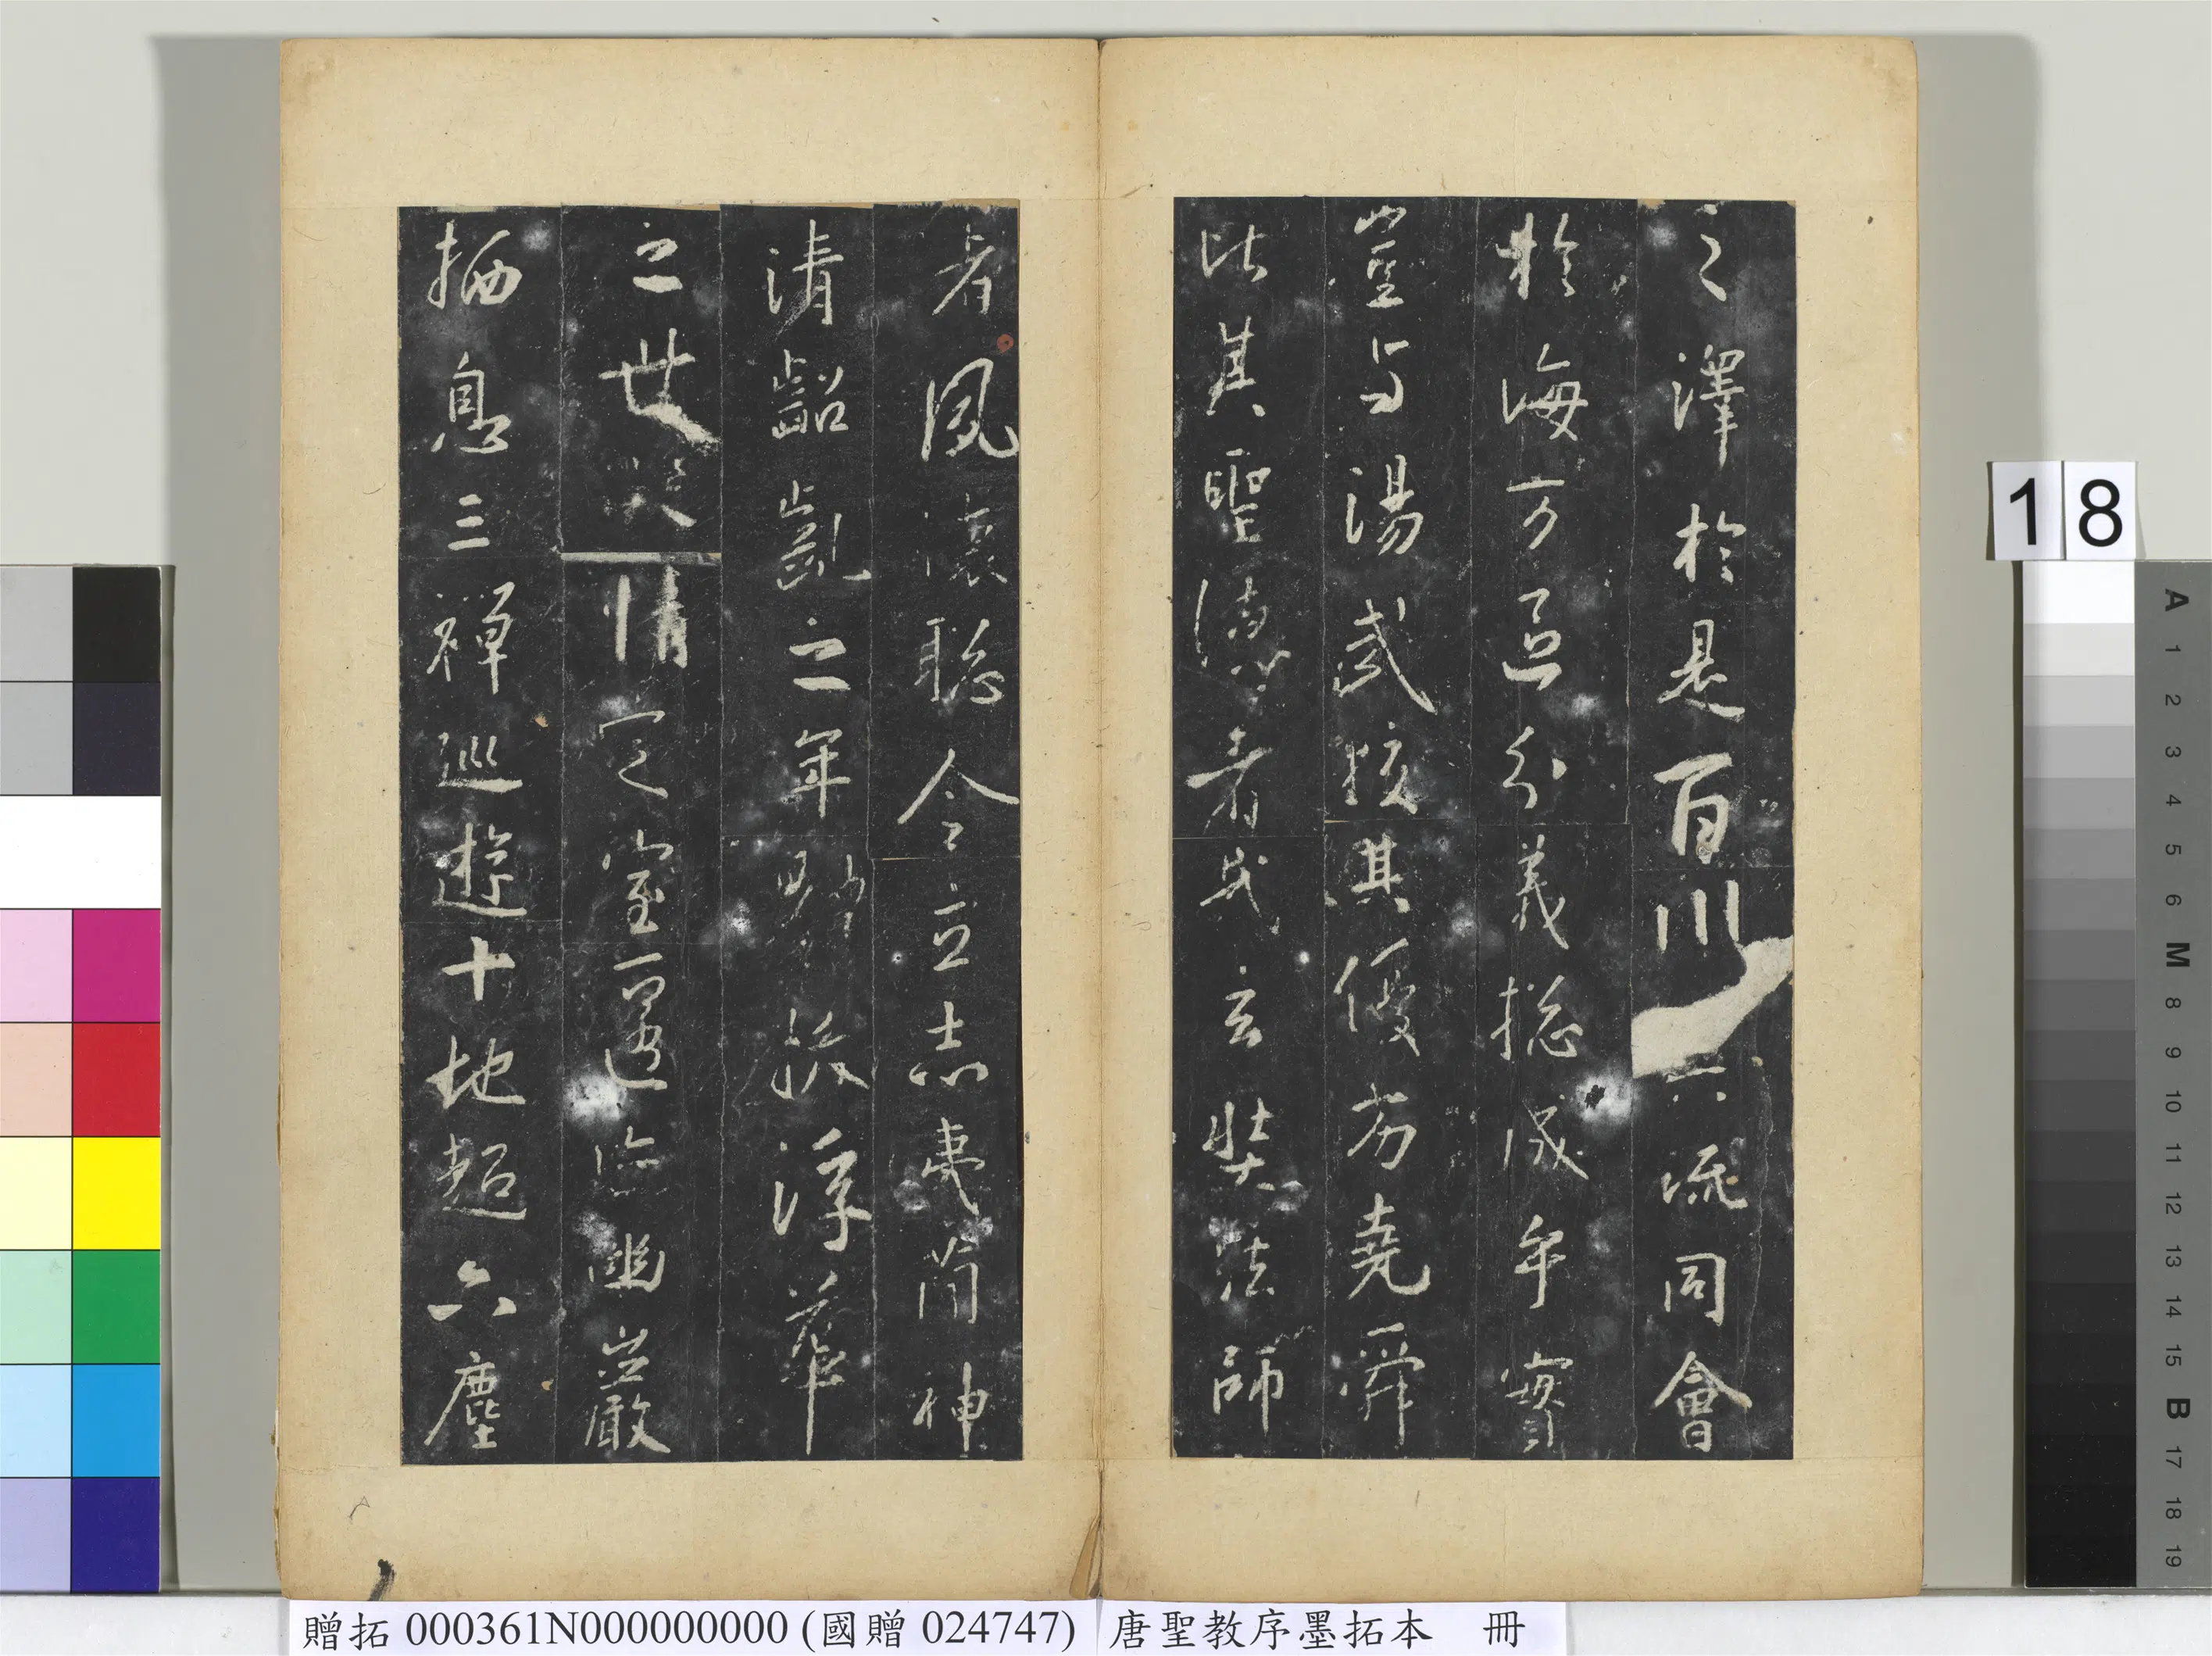 之澤於是百川異流同會
於海万區分義揔成乎實
豈与湯武挍其優劣堯舜
比其聖德者哉玄奘法師
者夙懷聡令立志夷簡神
清齠齔之年體拔浮華
之世凝情定室匿迹幽巖
栖息三禪巡遊十地超六塵
18
A
1
2
3
4
5
6
M
8
9
10
11
12
13
14
15
B
17
18
19
贈拓 000361N000000000 (國贈 024747)
唐聖教序墨拓本 冊